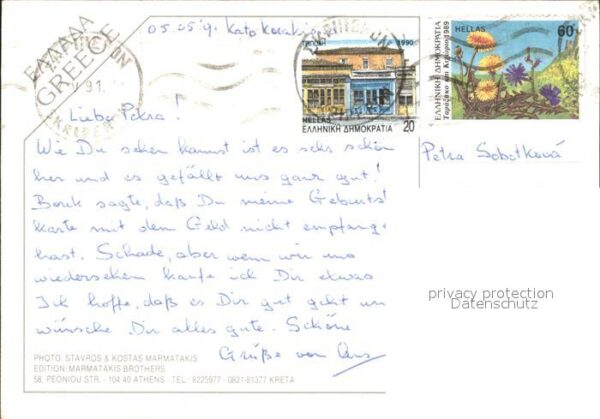 ΕΛΛΑΔΑ
GREECE
05.05.91 Kato
ΤΡΙΠΟΛΗ 1990
HELLAS
ΕΛΛΗΝΙΚΗ ΔΗΜΟΚΡΑΤΙΑ 20
HELLAS 60
ΕΛΛΗΝΙΚΗ ΔΗΜΟΚΡΑΤΙΑ
1989
91
Liebe Petra!
Wie Du sehen kannst ist es sehr schön
hier und es gefällt uns ganz gut!
sagte, daß Du meine Geburts
karte mit dem Geld nicht empfang
hast. Schade, aber wenn wir uns
wiedersehen kaufe ich Dir etwas
Ich hoffe, daß es Dir gut geht un
wünsche Dir alles gute. Schöne
Grüße von
Petra Sobotková
privacy protection
Datenschutz
PHOTO: STAVROS & KOSTAS MARMATAKIS
EDITION: MARMATAKIS BROTHERS
58, PEONIOU STR. - 104 40 ATHENS - TEL.: 8225977 - 0821-81377 KRETA